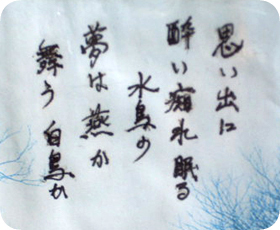 思い出に
酔い痴れ眠る
水鳥の
夢は燕か
舞う白鳥か